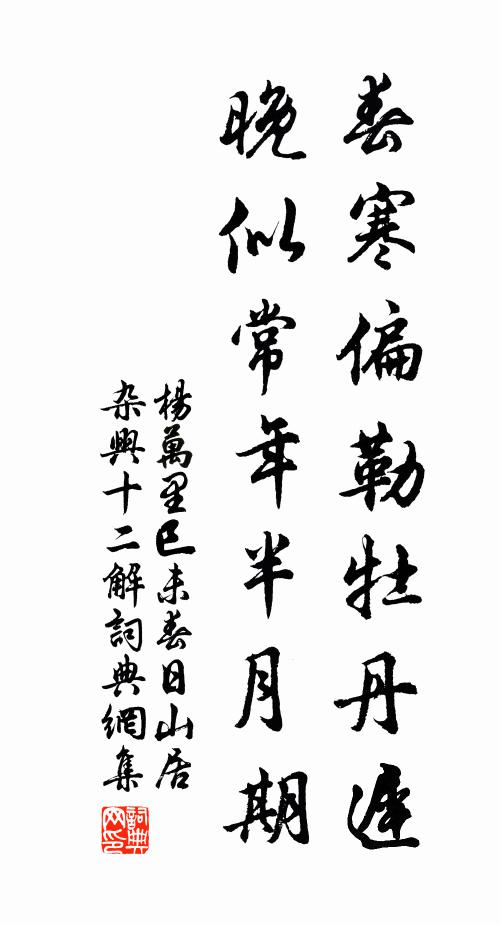 春寒偏勒牡丹遲
晚似常年半月期
楊萬里巳未春日山居
杂興十二解詞典網集
詞典网印